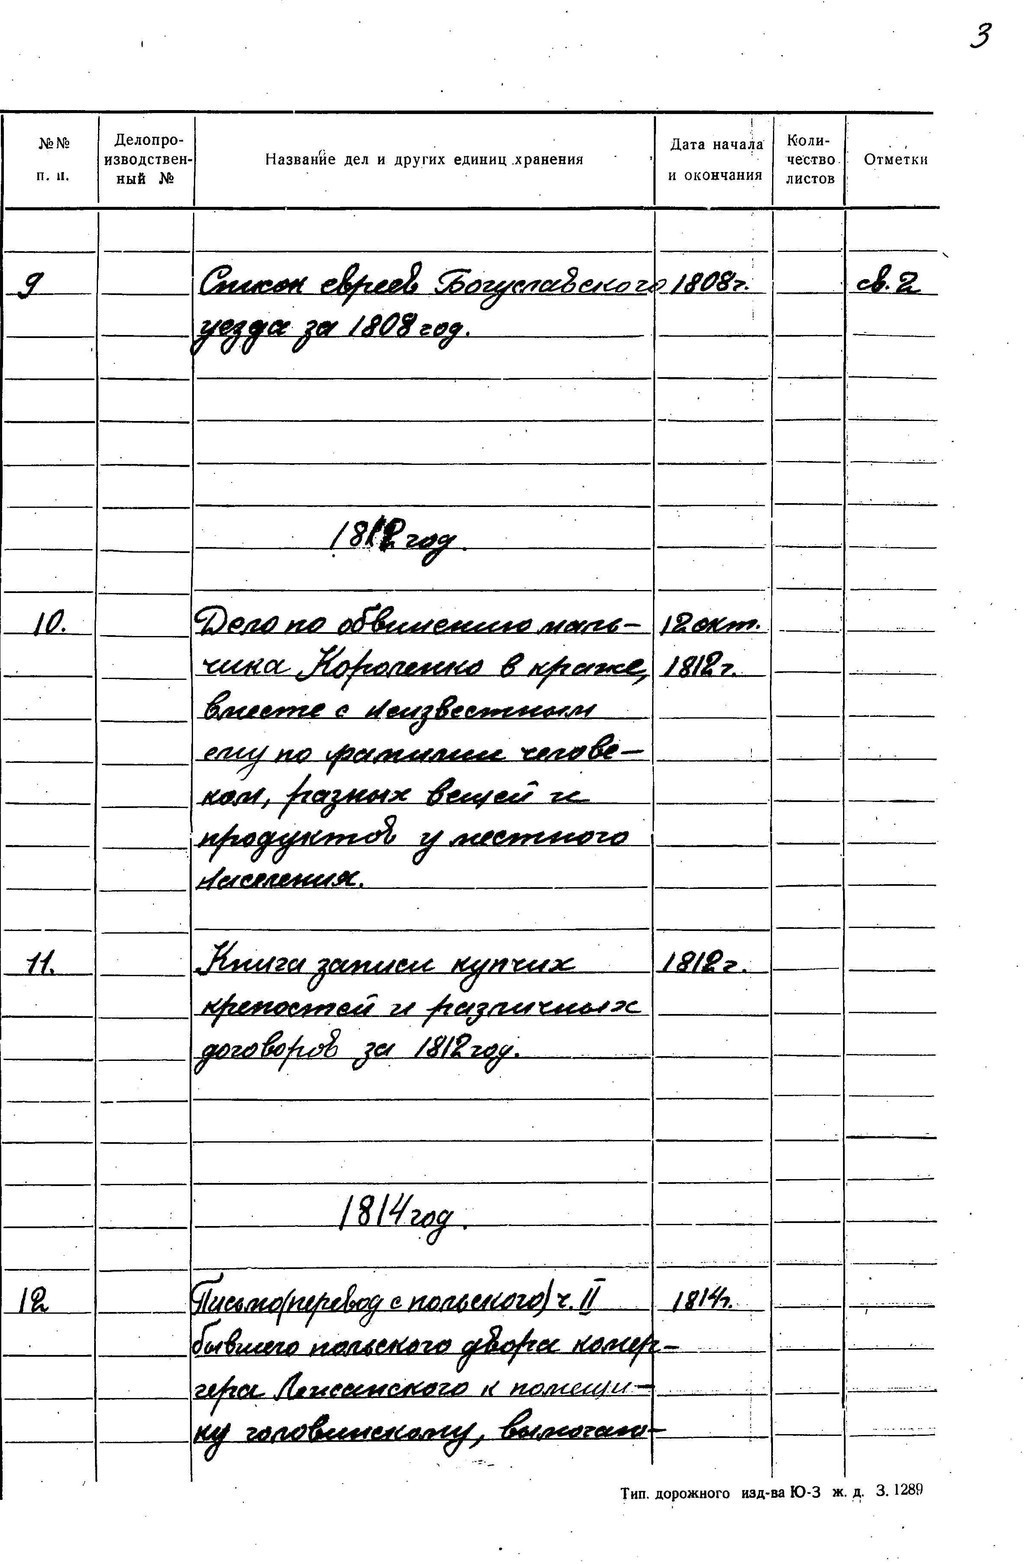 3
№№ п. п. Делопроизводственный № Название дел и других единиц хранения Дата начала и окончания Количество листов Отметки
9 Список евреев Богуславского 1808г. св. 2
уезда за 1808 год.
1812 год.
10. Дело по обвинению маль- 12 окт.
чика Короленко в краже, 1812 г.
вместе с неизвестным
ему по фамилии челове-
ком, разных вещей и
продуктов у местного
населения.
11. Книга записи купчих 1812 г.
крепостей и различных
договоров за 1812 год.
1814 год.
12 Письмо (перевод с польского) ч. II 1814г.
бывшего польского двора камер-
гера к помещи-
ку Головинскому, вымогаю-
Тип. дорожного изд-ва Ю-З ж. д. З. 1289